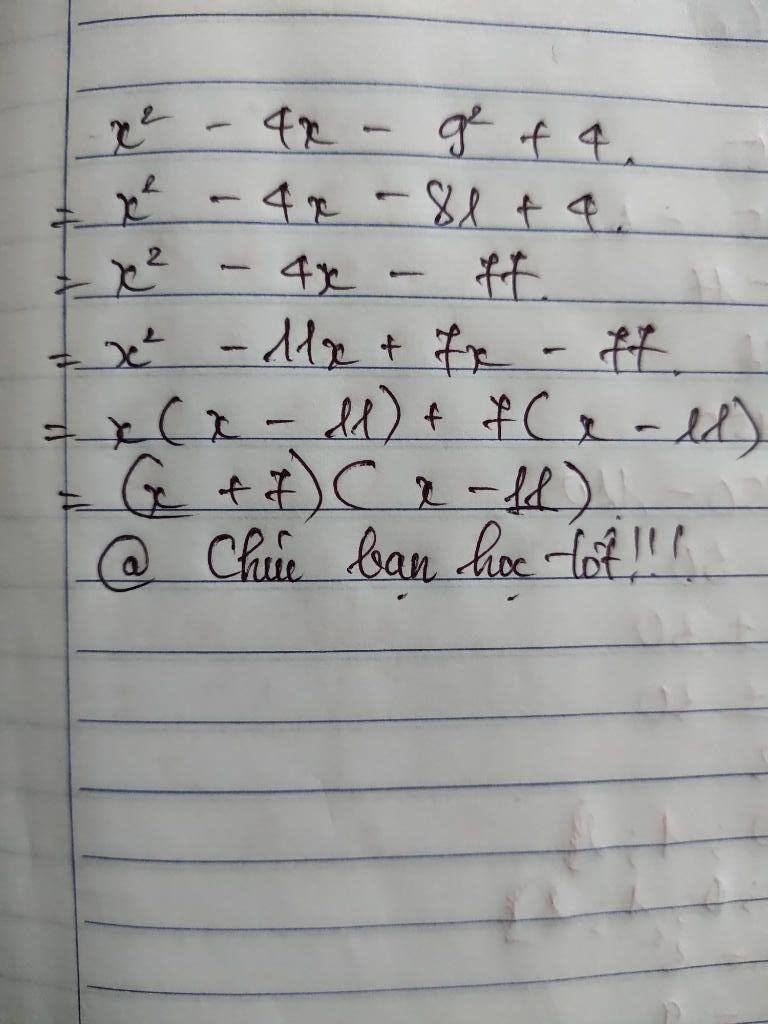 x² - 4x - 9² + 4.
= x² - 4x - 81 + 4.
= x² - 4x - 77.
= x² - 11x + 7x - 77.
= x(x - 11) + 7(x - 11)
= (x + 7)(x - 11)
@ Chúc bạn học tốt!!!